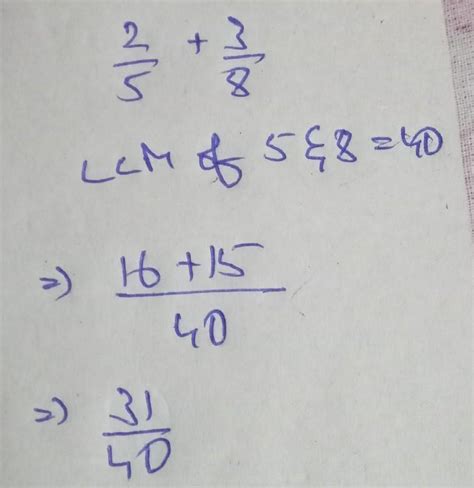 2/5 + 3/8
LCM of 5 & 8 = 40
=> 16 + 15 / 40
=> 31/40